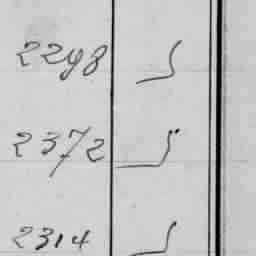 2298
2372
2314